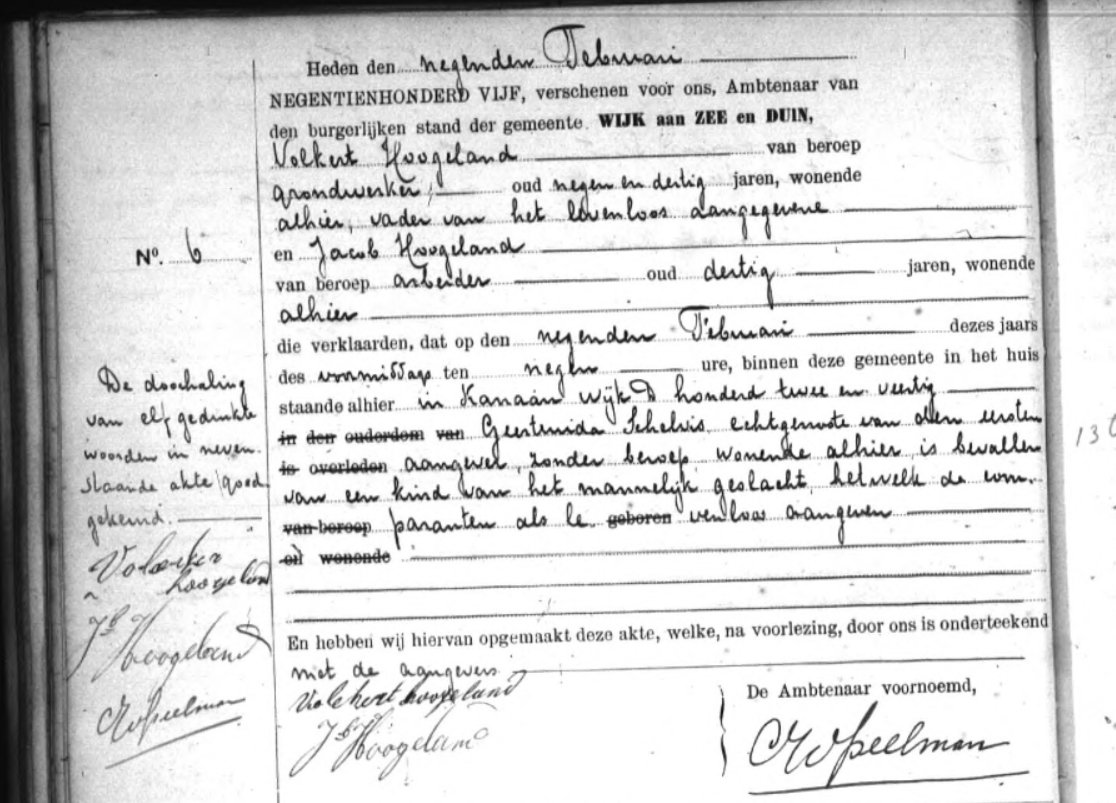 Heden den negenden Februari
NEGENTIENHONDERD VIJF, verschenen voor ons, Ambtenaar van
den burgerlijken stand der gemeente WIJK aan ZEE en DUIN,
Volkert Hoogeland van beroep
grondwerker, oud negen en dertig jaren, wonende
alhier, vader van het levenloos aangegevene
No. 6
en Jacob Hoogeland
van beroep arbeider oud dertig jaren, wonende
alhier
die verklaarden, dat op den negenden Februari dezes jaars
des voormiddags ten negen ure, binnen deze gemeente in het huis
staande alhier in Kanaän wijk D honderd twee en veertig
in den ouderdom van Geertruida Schelvis, echtgenoote van den eersten
is overleden aangever, zonder beroep, wonende alhier is bevallen
van een kind van het mannelijk geslacht, hetwelk de com-
van beroep paranten als le geboren venloos aangeven
en wonende
De doorhaling
van elf gedrukte
woorden in neven-
staande akte goed
gekeurd.
Hoogeland
Jb Hoogeland
En hebben wij hiervan opgemaakt deze akte, welke, na voorlezing, door ons is onderteekend
met de aangevers.
Volkert hoogeland
Jb Hoogeland
De Ambtenaar voornoemd,